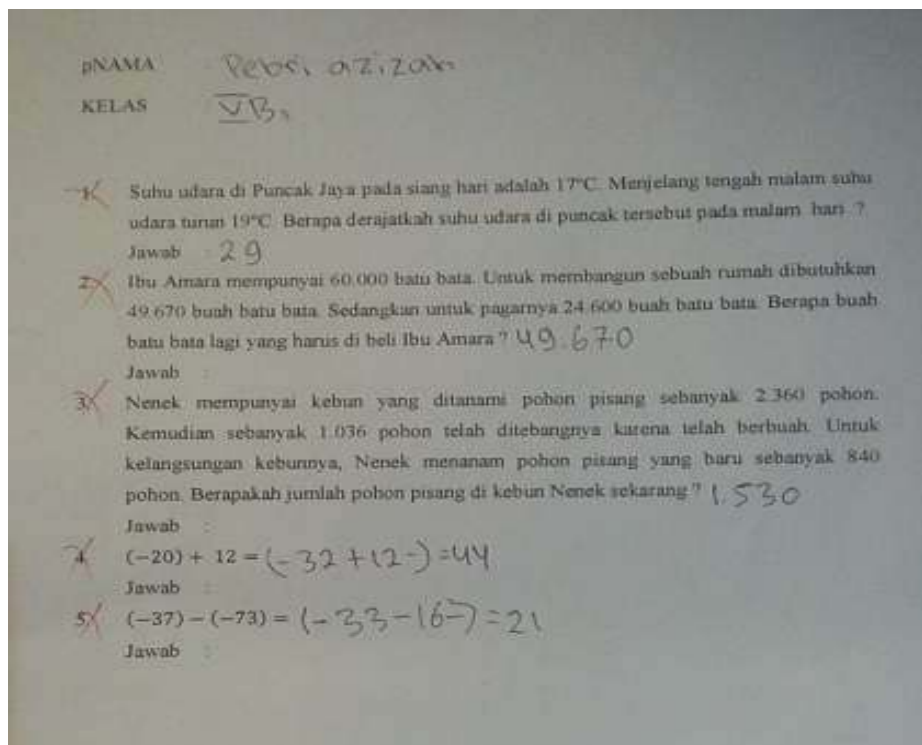 pNAMA Pebri azizah
KELAS VB,
1. Suhu udara di Puncak Jaya pada siang hari adalah 17°C. Menjelang tengah malam suhu
udara turun 19°C. Berapa derajatkah suhu udara di puncak tersebut pada malam hari ?
Jawab : 29
2. Ibu Amara mempunyai 60.000 batu bata. Untuk membangun sebuah rumah dibutuhkan
49.670 buah batu bata. Sedangkan untuk pagarnya 24.600 buah batu bata. Berapa buah
batu bata lagi yang harus di beli Ibu Amara ? 49.670
Jawab :
3. Nenek mempunyai kebun yang ditanami pohon pisang sebanyak 2.360 pohon.
Kemudian sebanyak 1.036 pohon telah ditebangnya karena telah berbuah. Untuk
kelangsungan kebunnya, Nenek menanam pohon pisang yang baru sebanyak 840
pohon. Berapakah jumlah pohon pisang di kebun Nenek sekarang ? 1.530
Jawab :
4. (−20) + 12 = (-32+12-)=44
Jawab :
5. (−37) − (−73) = (-33-16-)=21
Jawab :